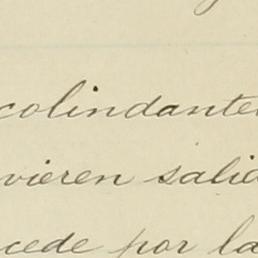 colindante
vieren salid
cede por la